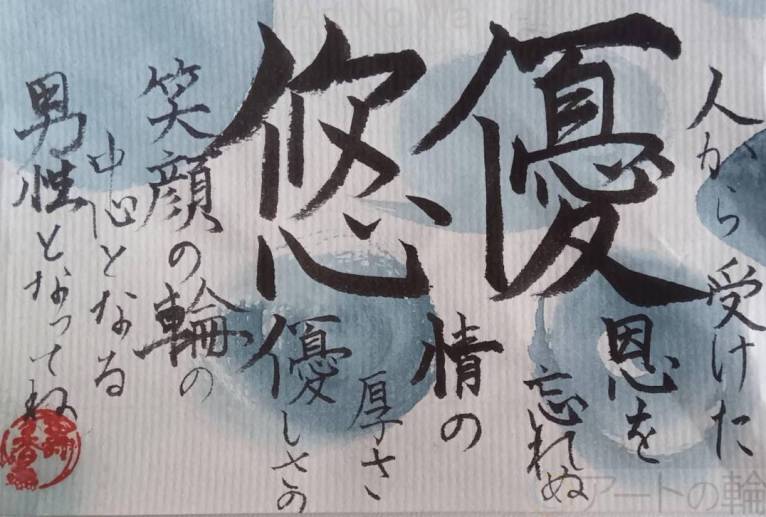 優悠
人から受けた
恩を
忘れぬ
情の
厚さ
優しさの
笑顔の輪の
中心となる
男性となってね
アートの輪